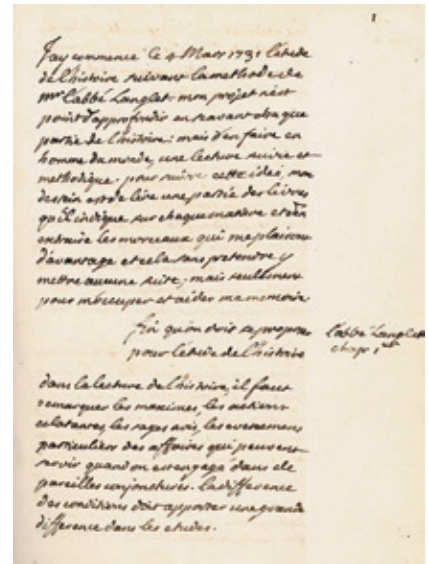 1
J'ay commencé le 4 Mars 1731 l'etude
de l'histoire suivant la methode de
mr l'abbé Langlet. mon projet n'est
point d'approfondir en scavant chaque
partie de l'histoire: mais d'en faire en
homme du monde, une lecture suivie et
methodique. pour suivre cette idée, mon
dessein est de lire une partie des livres
qu'il indique sur chaque matiere et d'en
extraire les morceaux qui me plairont
d'avantage et cela sans pretendre y
mettre aucune suite, mais seulement
pour m'occuper et aider ma memoire
fin qu'on doit se proposer
pour l'etude de l'histoire
l'abbé Langlet
chap 1er
dans la lecture de l'histoire, il faut
remarquer les maximes, les actions
eclatantes, les sages avis, les evenemens
particuliers des affaires qui peuvent
servir quand on est engagé dans de
pareilles conjonctures. la difference
des conditions doit apporter une grande
difference dans les etudes.